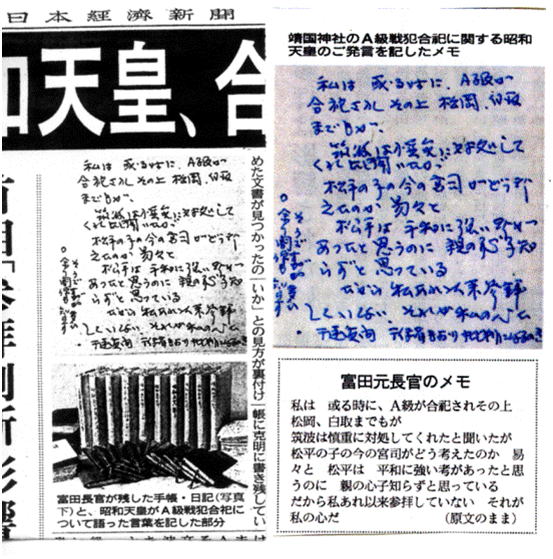 日本經濟新聞
和天皇、合
私は 或る時に、A級が
合祀されその上 松岡、白取
までもが、
筑波は慎重に対処して
くれたと聞いたが
松平の子の今の宮司がどう考
えたのか 易々と
松平は 平和に強い考が
あったと思うのに 親の心子知
らずと思っている
だから 私あれ以来参拝
していない それが私の心だ
めた文書が見つかったの
いか」との見方が裏付け
帳に克明に書き残してい
富田長官が残した手帳・日記(写真
下)と、昭和天皇がA級戦犯合祀に
ついて語った言葉を記した部分
靖国神社のA級戦犯合祀に関する昭和
天皇のご発言を記したメモ
私は 或る時に、A級が
合祀されその上 松岡、白取
までもが、
筑波は慎重に対処して
くれたと聞いたが
松平の子の今の宮司がどう考
えたのか 易々と
松平は 平和に強い考が
あったと思うのに 親の心子知
らずと思っている
だから 私あれ以来参拝
していない それが私の心だ
富田元長官のメモ
私は 或る時に、A級が合祀されその上
松岡、白取までもが
筑波は慎重に対処してくれたと聞いたが
松平の子の今の宮司がどう考えたのか 易
々と 松平は 平和に強い考があったと思
うのに 親の心子知らずと思っている
だから私あれ以来参拝していない それが
私の心だ (原文のまま)